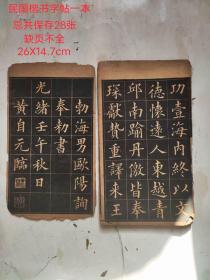 民国楷书字帖一本
总共保存28张
缺页不全
26X14.7cm
功壹海内終以文
德懷遠人東越青
邱南踰丹徼皆
琛獻贄重譯來王
勃海男歐陽詢
奉勅書
光緒壬午秋日
黄自元臨